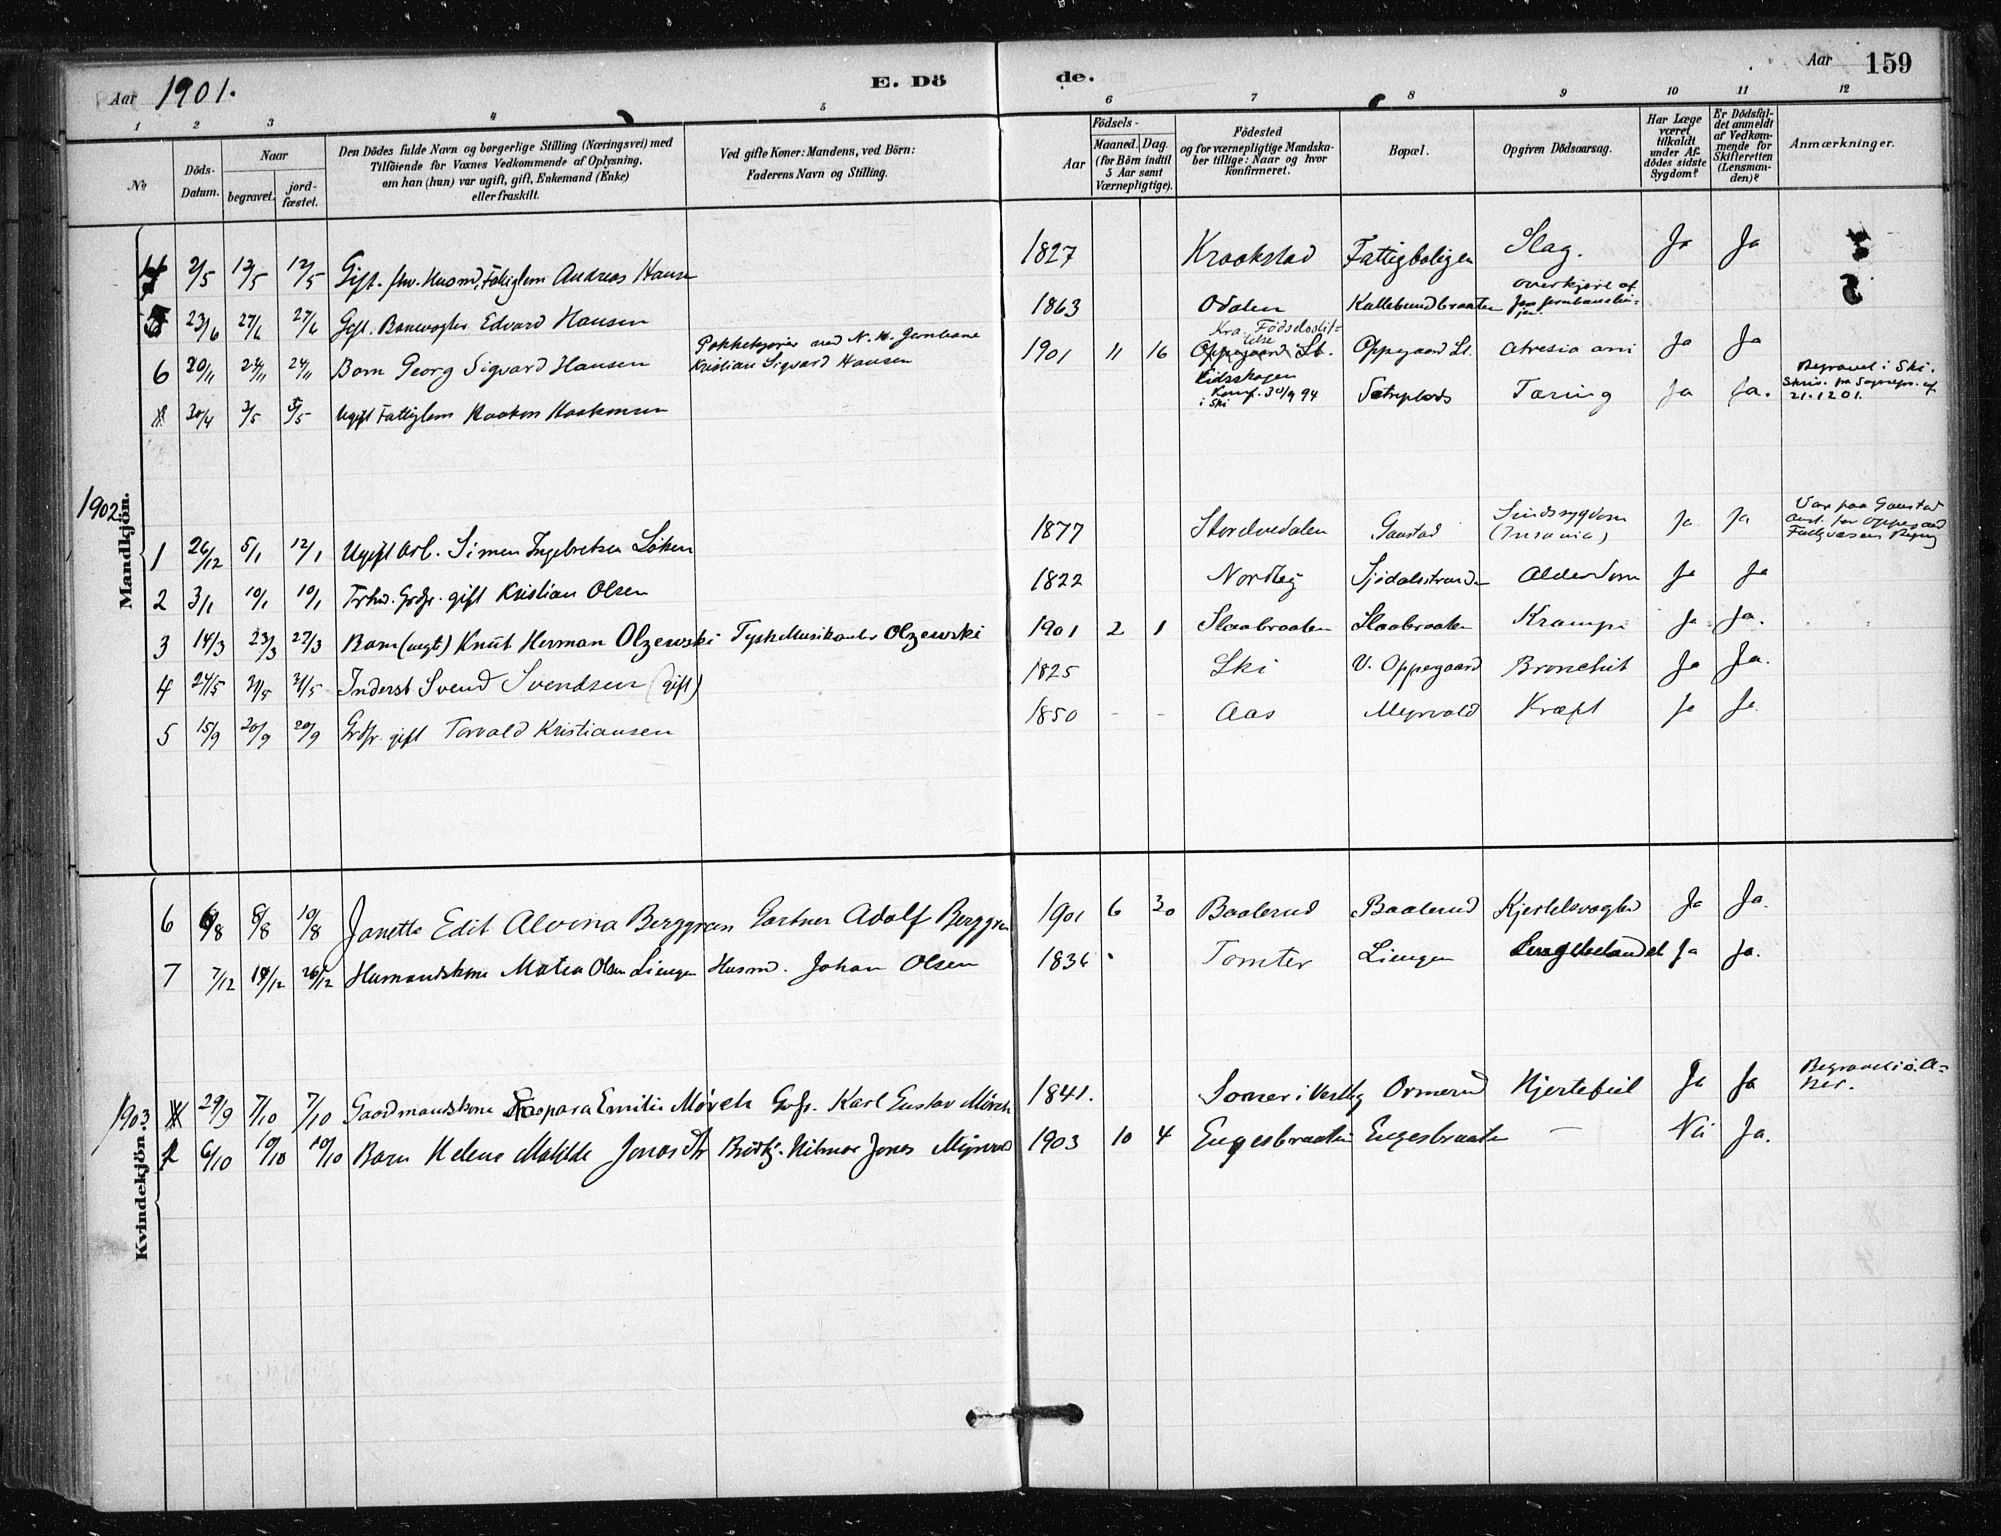 Aar 1901.
E. Dö de.
Aar 159
1 2 3 4 5 6 7 8 9 10 11 12
No
Döds-
Datum.
Naar
begravet.
jord-
fæstet.
Den Dödes fulde Navn og borgerlige Stilling (Næringsvei) med
Tilföiende for Voxnes Vedkommende af Oplysning,
om han (hun) var ugift, gift, Enkemand (Enke)
eller fraskilt.
Ved gifte Koner: Mandens, ved Börn:
Faderens Navn og Stilling.
Födsels-
Aar
Maaned. Dag.
(for Börn indtil
5 Aar samt
Værnepligtige).
Födested
og for værnepligtige Mandska-
ber tillige: Naar og hvor
konfirmeret.
Bopæl.
Opgiven Dödsaarsag.
Har Læge
været
tilkaldt
under Af-
dödes sidste
Sygdom?
Er Dödsfal-
det anmeldt
af Vedkom-
mende for
Skifteretten
(Lensman-
den)?
Anmærkninger.
Mandkjön.
4 2/5 12/5 12/5 Gift. fhv. Husmd, Fattiglem Andreas Hansen 1827 Kraakstad Fattigboligen Slag. Ja Ja
5 23/6 27/6 27/6 Gift. Banevogter Edvard Hansen 1863 Odalen Kullebundbraaten overkjört af
6 20/11 24/11 24/11 Barn Georg Sigvard Hansen Pakkekjører ved N. H. Jernbane
Kristian Sigvard Hansen 1901 11 16 Kra. Födselsstif-
telse
Oppegaard St. Oppegaard St. Atresia ani Ja Ja
30/4 3/5 5/5 Ugift Fattiglem Haakon Haakonsen Eidsskogen
Konf. 30/9 94
i Ski Sætreplads Tæring Ja Ja. Begravet i Ski.
Skriv. fra Sognepr. af
21.12 01.
1902.
1 26/12 5/1 12/1 Ugift Arb. Simen Ingebretsen Løken 1877 Storelvedalen Gaustad Sindssygdom
(Insania) Ja Ja Var paa Gaustad
Anst. for Oppegaard
Fattigvæsens Regng
2 3/1 10/1 10/1 Frhv. Grdbr. gift Kristian Olsen 1822 Nordby Sjödalsstranden Alderdom Ja Ja
3 14/3 23/3 27/3 Barn (uægte) Knut Herman Olzewski Tysk Musikanter Olzewski 1901 2 1 Slaabraaten Slaabraaten Krampe Ja Ja.
4 24/5 31/5 31/5 Inderst Svend Svendsen (gift) 1825 Ski V. Oppegaard Bronchit Ja Ja.
5 15/9 20/9 20/9 Grdbr. gift Torvald Kristiansen 1850 - - Aas Myrvold Kræft Ja Ja.
Kvindekjön.
6 6/8 8/8 10/8 Janette Edit Alvina Berggren Gartner Adolf Berggren 1901 6 30 Baalerud Baalerud Ja Ja.
7 7/12 14/12 26/12 Husmandskone Matea Olsen Liengen Husmd. Johan Olsen 1836 Tomter Liengen Ja Ja.
1903
29/9 7/10 7/10 Gaardmandskone Kaspara Emilie Mørch Grdbr. Karl Gustav Mørch 1841. Soner i Vestby Ormerud Hjertefeil Ja Ja
2 6/10 10/10 10/10 Barn Helene Matilde Jonas Dtr Brödkj. Hilmar Jonas Myrvold 1903 10 4 Eugesbraaten Eugesbraaten — Nei Ja.